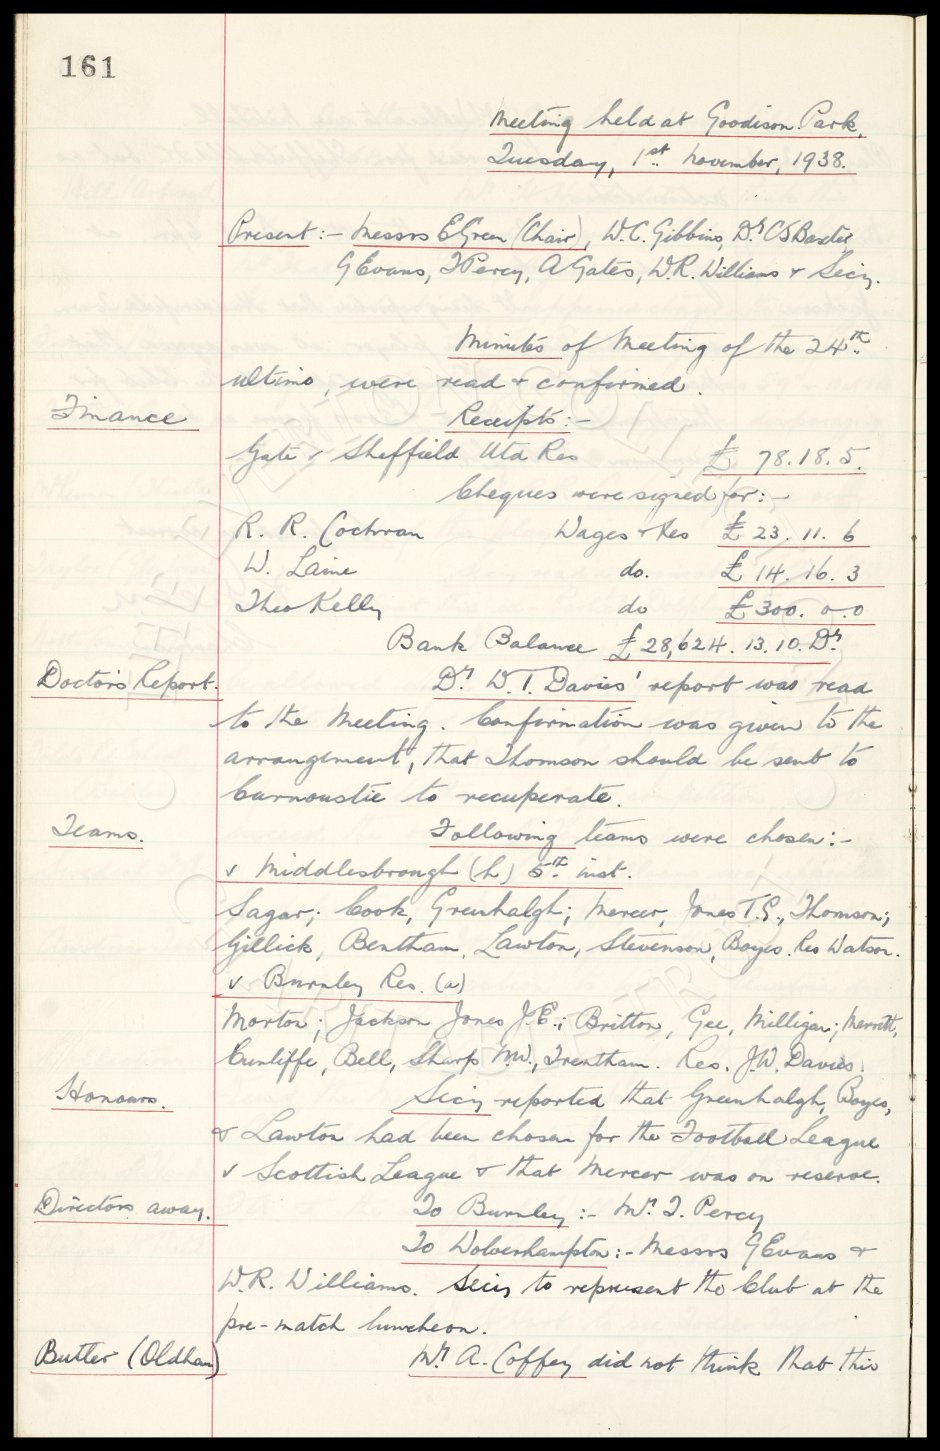 161
Meeting held at Goodison Park,
Tuesday, 1st November, 1938.
Present:- Messrs E Green (Chair), W.C. Gibbins, Dr CS Baxter,
G Evans, T Percy, A Gates, W.R. Williams & Secy.
Minutes of Meeting of the 24th
ultimo, were read & confirmed.
Finance
Receipts:-
Gate v Sheffield Utd Res £ 78.18.5.
Cheques were signed for:-
R. R. Cochran Wages &c £ 23. 11. 6
W. Laine do. £ 14. 16. 3
Theo Kelly do £ 300. 0. 0
Bank Balance £ 28,624. 13. 10. Dr
Doctor's Report.
Dr. W. T. Davies' report was read
to the Meeting. Confirmation was given to the
arrangement, that Thomson should be sent to
Carnoustie to recuperate.
Teams.
Following teams were chosen:-
v Middlesbrough (h) 5th inst.
Sagar; Cook, Greenhalgh; Mercer, Jones T.G., Thomson;
Gillick, Bentham, Lawton, Stevenson, Boyes. Res Watson.
v Burnley Res. (a)
Morton; Jackson Jones J.E.; Britton, Gee, Milligan; Merritt,
Cunliffe, Bell, Sharp N.W., Trentham. Res. J.W. Davies.
Honours.
Secy reported that Greenhalgh, Boyes,
& Lawton had been chosen for the Football League
v Scottish League & that Mercer was on reserve.
Directors away.
To Burnley:- Mr. T. Percy
To Wolverhampton:- Messrs G Evans &
W.R. Williams. Secy to represent the Club at the
pre-match luncheon.
Butler (Oldham)
Mr. A. Coffey did not think that this